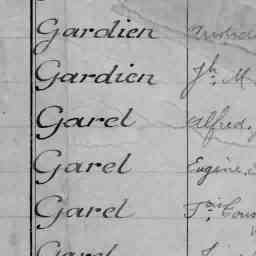 Gardien
Gardien Jh. M
Garel Alfred,
Garel Eugène,
Garel Fois. Cons
Garel